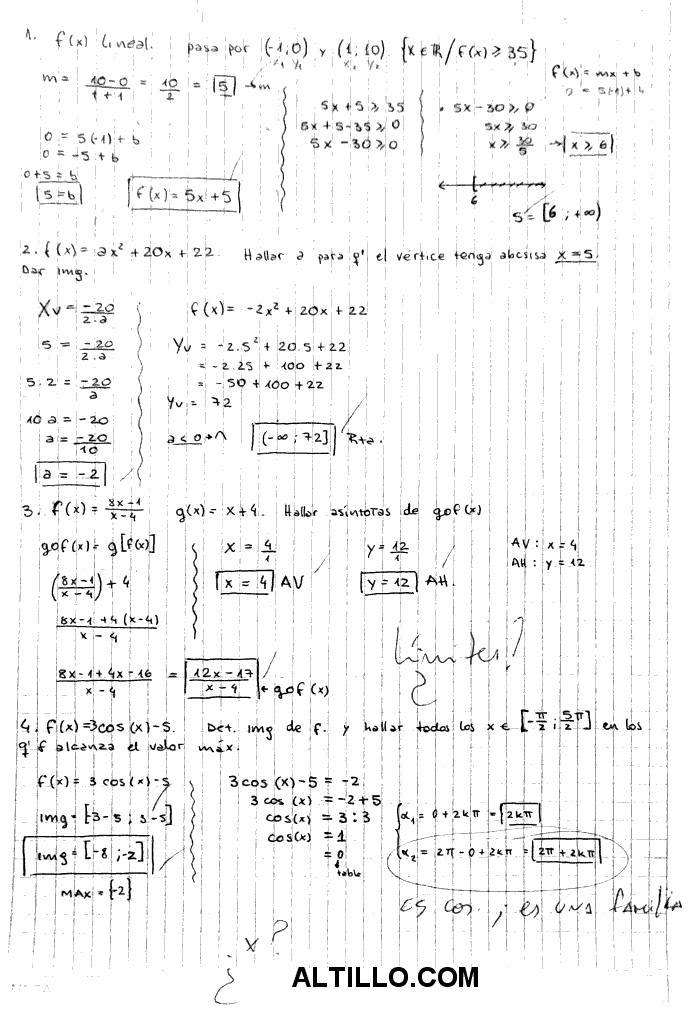 1. f(x) lineal. pasa por (-1;0) y (1;10) {x∈R/f(x) ≥ 35}
x₁ y₁ x₂ y₂
m = 10-0/1+1 = 10/2 = 5 → m
f(x) = mx + b
0 = 5(-1) + b
5x + 5 ≥ 35
5x + 5 - 35 ≥ 0
5x - 30 ≥ 0
5x - 30 ≥ 0
5x ≥ 30
x ≥ 30/5 → x ≥ 6
0 = 5(-1) + b
0 = -5 + b
0+5 = b
5 = b
f(x) = 5x + 5
6
S = [6 ; +∞)
2. f(x) = ax² + 20x + 22. Hallar a para q' el vértice tenga abcsisa x = 5.
Dar img.
Xv = -20/2.a
5 = -20/2.a
5.2 = -20/a
10 a = -20
a = -20/10
a = -2
f(x) = -2x² + 20x + 22
Yv = -2.5² + 20.5 + 22
= -2.25 + 100 + 22
= -50 + 100 + 22
Yv = 72
a < 0 → ∩ (-∞ ; 72] Rta.
3. f(x) = 8x-1/x-4 g(x) = x + 4. Hallar asíntotas de gof(x)
gof(x) = g[f(x)]
(8x-1/x-4) + 4
8x-1 + 4(x-4)/x-4
8x-1+4x-16/x-4 = 12x-17/x-4 ← gof(x)
x = 4/1
x = 4 AV
y = 12/1
y = 12 AH.
AV: x = 4
AH: y = 12
Límites?
¿
4. f(x)=3cos(x)-5. Det. img de f. y hallar todos los x ∈ [-π/2 ; 5/2 π] en los
q' f alcanza el valor máx.
f(x) = 3 cos(x)-5
img = [-3-5 ; 3-5]
img = [-8 ; -2]
MAX = {-2}
3cos(x)-5 = -2
3cos(x) = -2+5
cos(x) = 3:3
cos(x) = 1
= 0
tabla
α₁ = 0 + 2kπ = 2kπ
α₂ = 2π - 0 + 2kπ = 2π + 2kπ
es cos. ; es una familia
¿x?
ALTILLO.COM